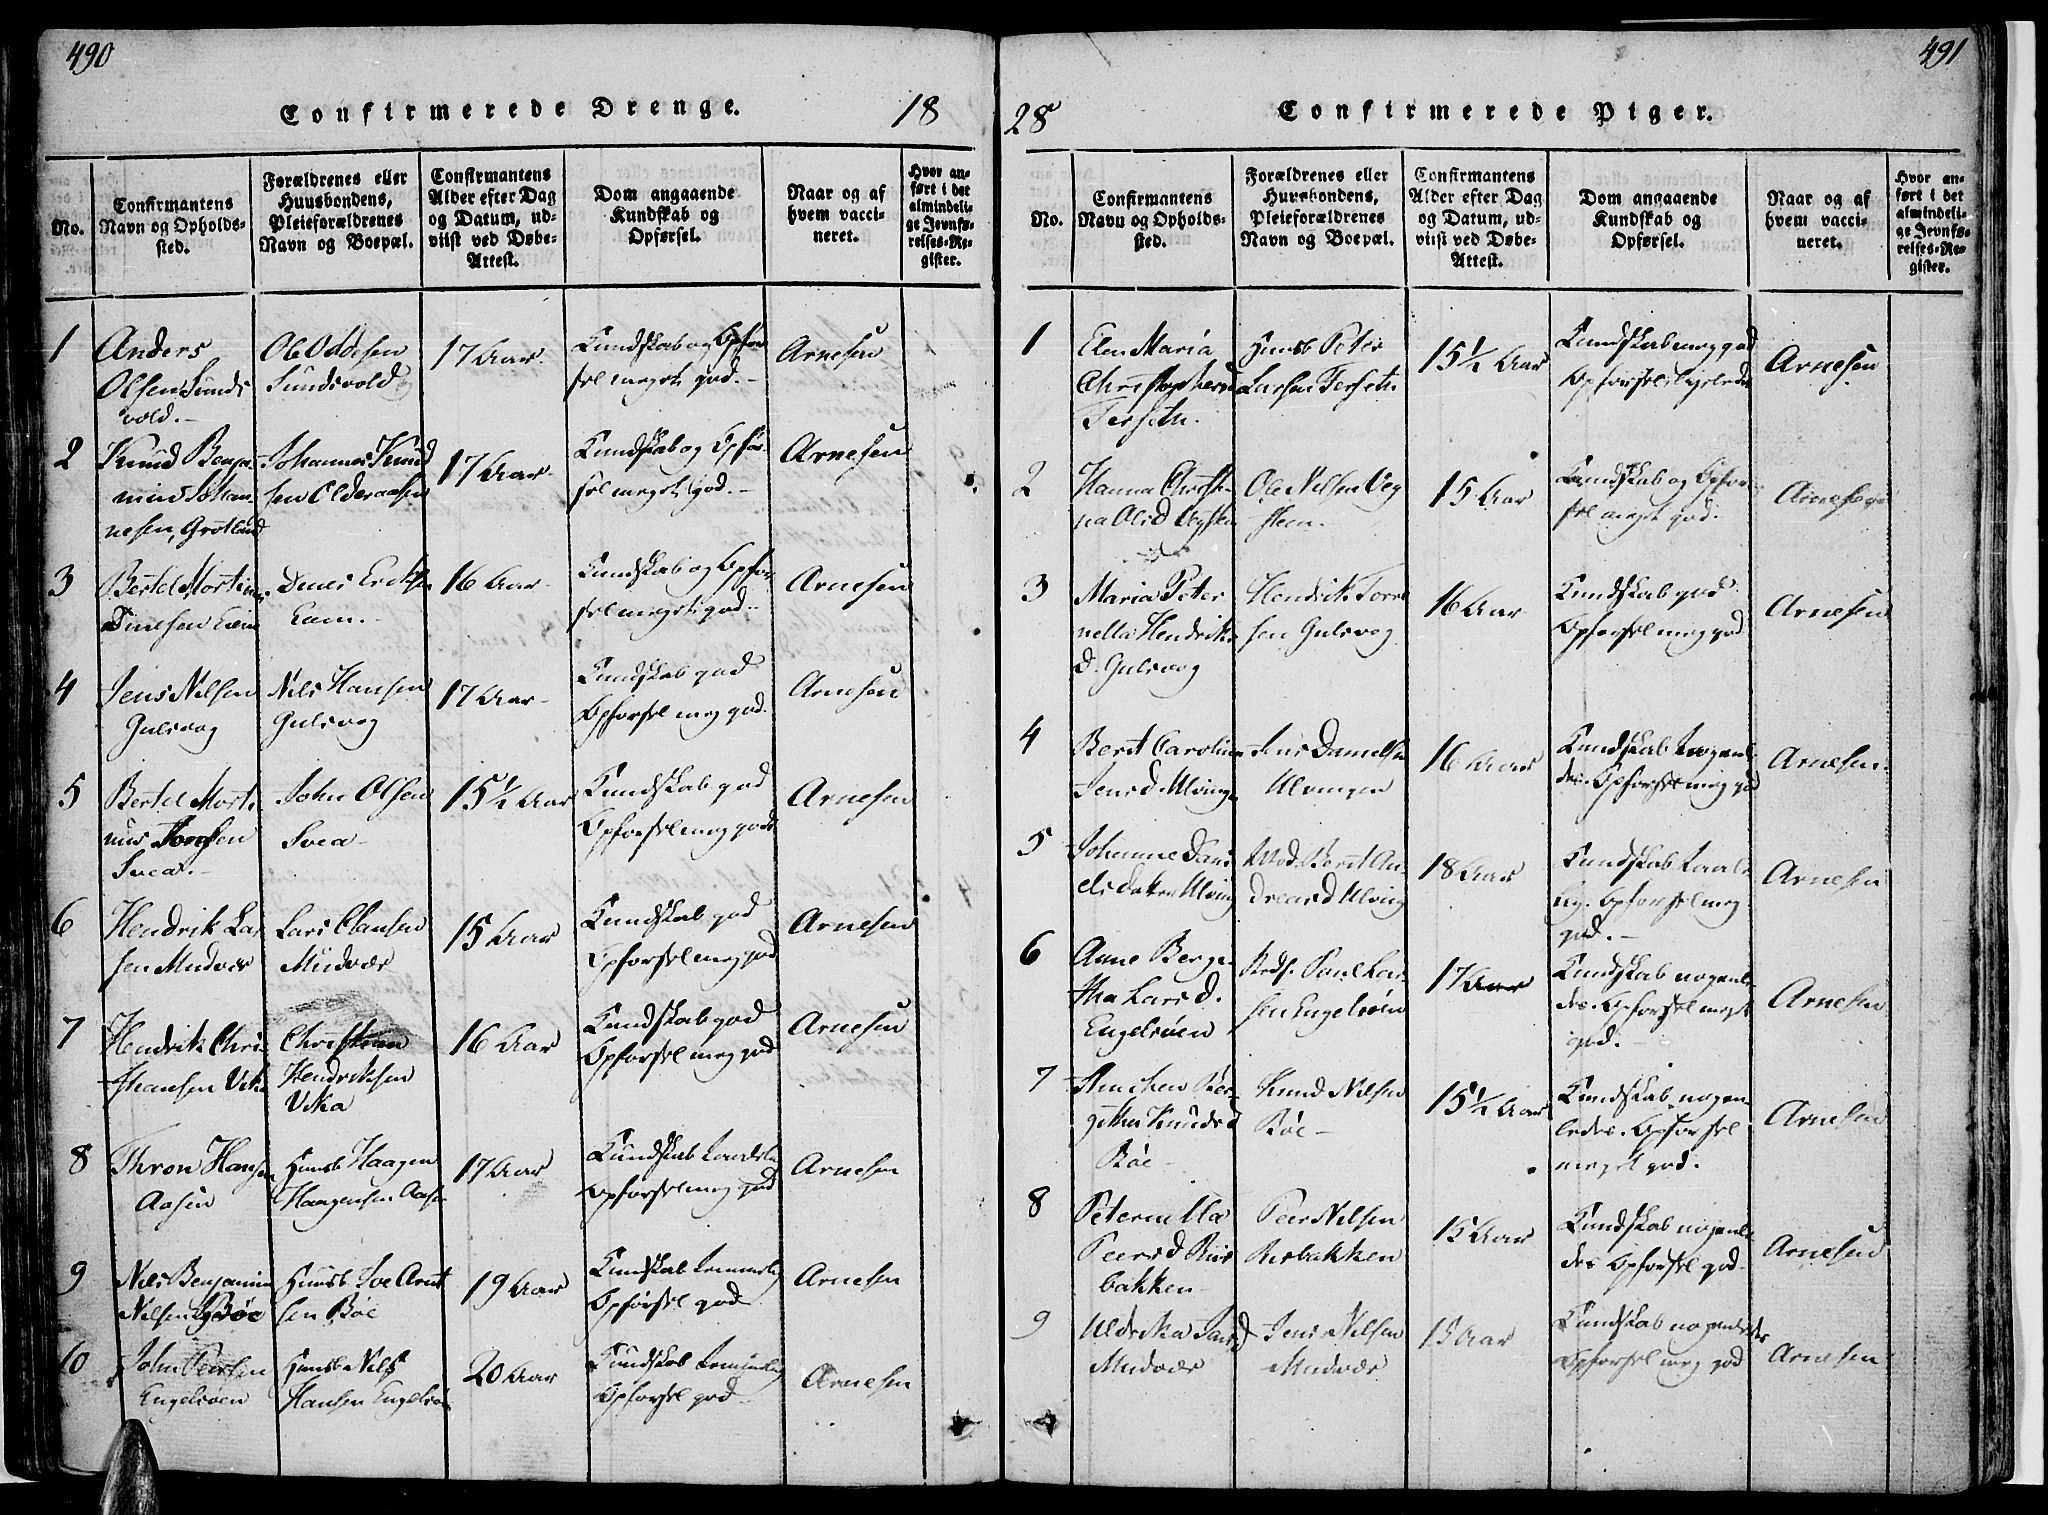 490
Confirmerede Drenge.
18
No.
Confirmantens
Navn og Opholds-
sted.
Forældrenes eller
Huusbondens,
Pleieforældrenes
Navn og Boepæl.
Confirmantens
Alder efter Dag
og Datum, ud-
viist ved Døbe-
Attest.
Dom angaaende
Kundskab og
Opførsel.
Naar og af
hvem vacci-
neret.
Hvor an-
ført i det
almindeli-
ge Jevnfø-
relses-Re-
gister.
1
Anders
Olsen Sunds
vold.-
Ole Oddesen
Sundsvold
17 Aar.
Kundskab og Opfør
sel meget god.-
Arnesen
2
Knud Benja-
min Johan-
nesen, Grotland
Johannes Knud
sen Olderaasen
17 Aar-
Kundskab og Opfør-
sel meget god.-
Arnesen
3
Bertel Mortinus
16 Aar-
Kundskab og Opfør
sel meget god-
Arnesen
4
Jens Nilsen
Gulsvog
Nils Hansen
Gulsvog
17 Aar-
Kundskab god
Opførsel meg god.
Arnesen
5
Bertel Morti
nus
Svea.-
John Olsen
Svea-
15½ Aar
Kundskab god
Opførsel meg god
Arnesen
6
Hendrik Lar
sen Mudvær
Lars Clausen
Mudvær
15 Aar
Kundskab god
Opførsel meg god
Arnesen
7
Hendrik Chri-
sthansen Vika
Christian
Hendriksen
Vika
16 Aar
Kundskab god
Opførsel meg god
Arnesen
8
Thron Hansen
Aasen
Huusb Haagen
Haagensen Aasen
17 Aar
Kundskab
Opførsel meg god
Arnesen
9
Nils Benjamin
Nilsen Bøe
Huusb
sen Bøe
19 Aar
Kundskab
Opførsel god
Arnesen
10
John Peersen
Engelsøen
Huusb Nils
Hansen Engelsøen
20 Aar
Kundskab
Opførsel god-
Arnesen
491
28
Confirmerede Piger.
No.
Confirmantens
Navn og Opholds-
sted.
Forældrenes eller
Huusbondens,
Pleieforældrenes
Navn og Boepæl.
Confirmantens
Alder efter Dag
og Datum, ud-
viist ved Døbe-
Attest.
Dom angaaende
Kundskab og
Opførsel.
Naar og af
hvem vacci-
neret.
Hvor an-
ført i det
almindeli-
ge Jevnfø-
relses-Re-
gister.
1
Elen Maria
Huusb Peter
Larsen
15½ Aar
Kundskab meg god
Opførsel
Arnesen
2
Hanna Christi-
na
Ole Nilsen Veg
steen.
15 Aar
Kundskab og Opfør-
sel meget god.
Arnesen
3
Maria Peter
nella Hendriks
D. Gulsvog
Hendrik
sen Gulsvog
16 Aar
Kundskab god.
Opførsel meg god
Arnesen
4
Berit Carolina
Jens D. Ulvingen
Jens Danielsen
Ulvingen
16 Aar
Kundskab nogenl-
des. Opførsel meg god
Arnesen.
5
Johanne
Mod. Berit An-
dreasd Ulving
18 Aar
Kundskab taale-
lig. Opførsel meg
god.-
Arnesen
6
Anne Berge-
tha Lars d.
Engelsøen
Poul Lar-
sen Engelsøen
17 Aar
Kundskab nogenl-
des. Opførsel meget
god.-
Arnesen
7
Knudsd
Bøe-
Knud Nilsen
Bøe-
15½ Aar
Kundskab nogen-
ledes. Opførsel
meget god.
Arnesen
8
Peternilla
Peersd Riis
bakken
Peer Nilsen
Risbakken
15 Aar
Kundskab nogenl-
des Opførsel god-
Arnesen
9
Uldrika Jensd
Mudvær
Jens Nilsen
Mudvær
15 Aar
Kundskab nogenledes
Opførsel meg god
Arnesen